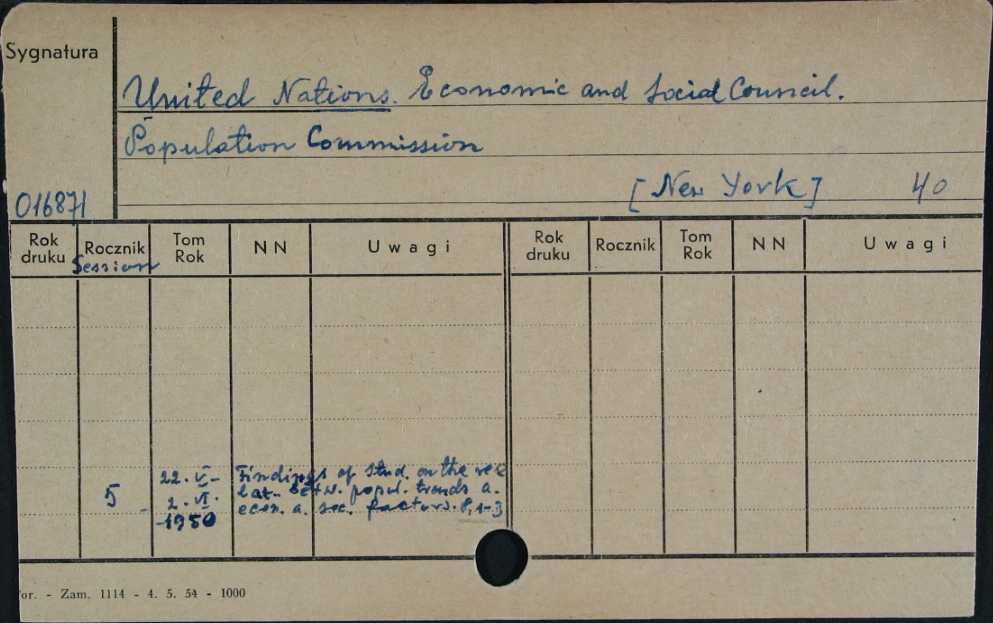 Sygnatura
United Nations. Economic and Social Council.
Population Commission
[New York] 40
016871
Rok druku Rocznik Tom Rok NN Uwagi Rok druku Rocznik Tom Rok NN Uwagi
Session
22. V -
Findings of stud. on the re
5
lat. betw. popul. trends a.
2. VI.
econ. a. soc. factors. P. 1-3
1950
or. - Zam. 1114 - 4. 5. 54 - 1000